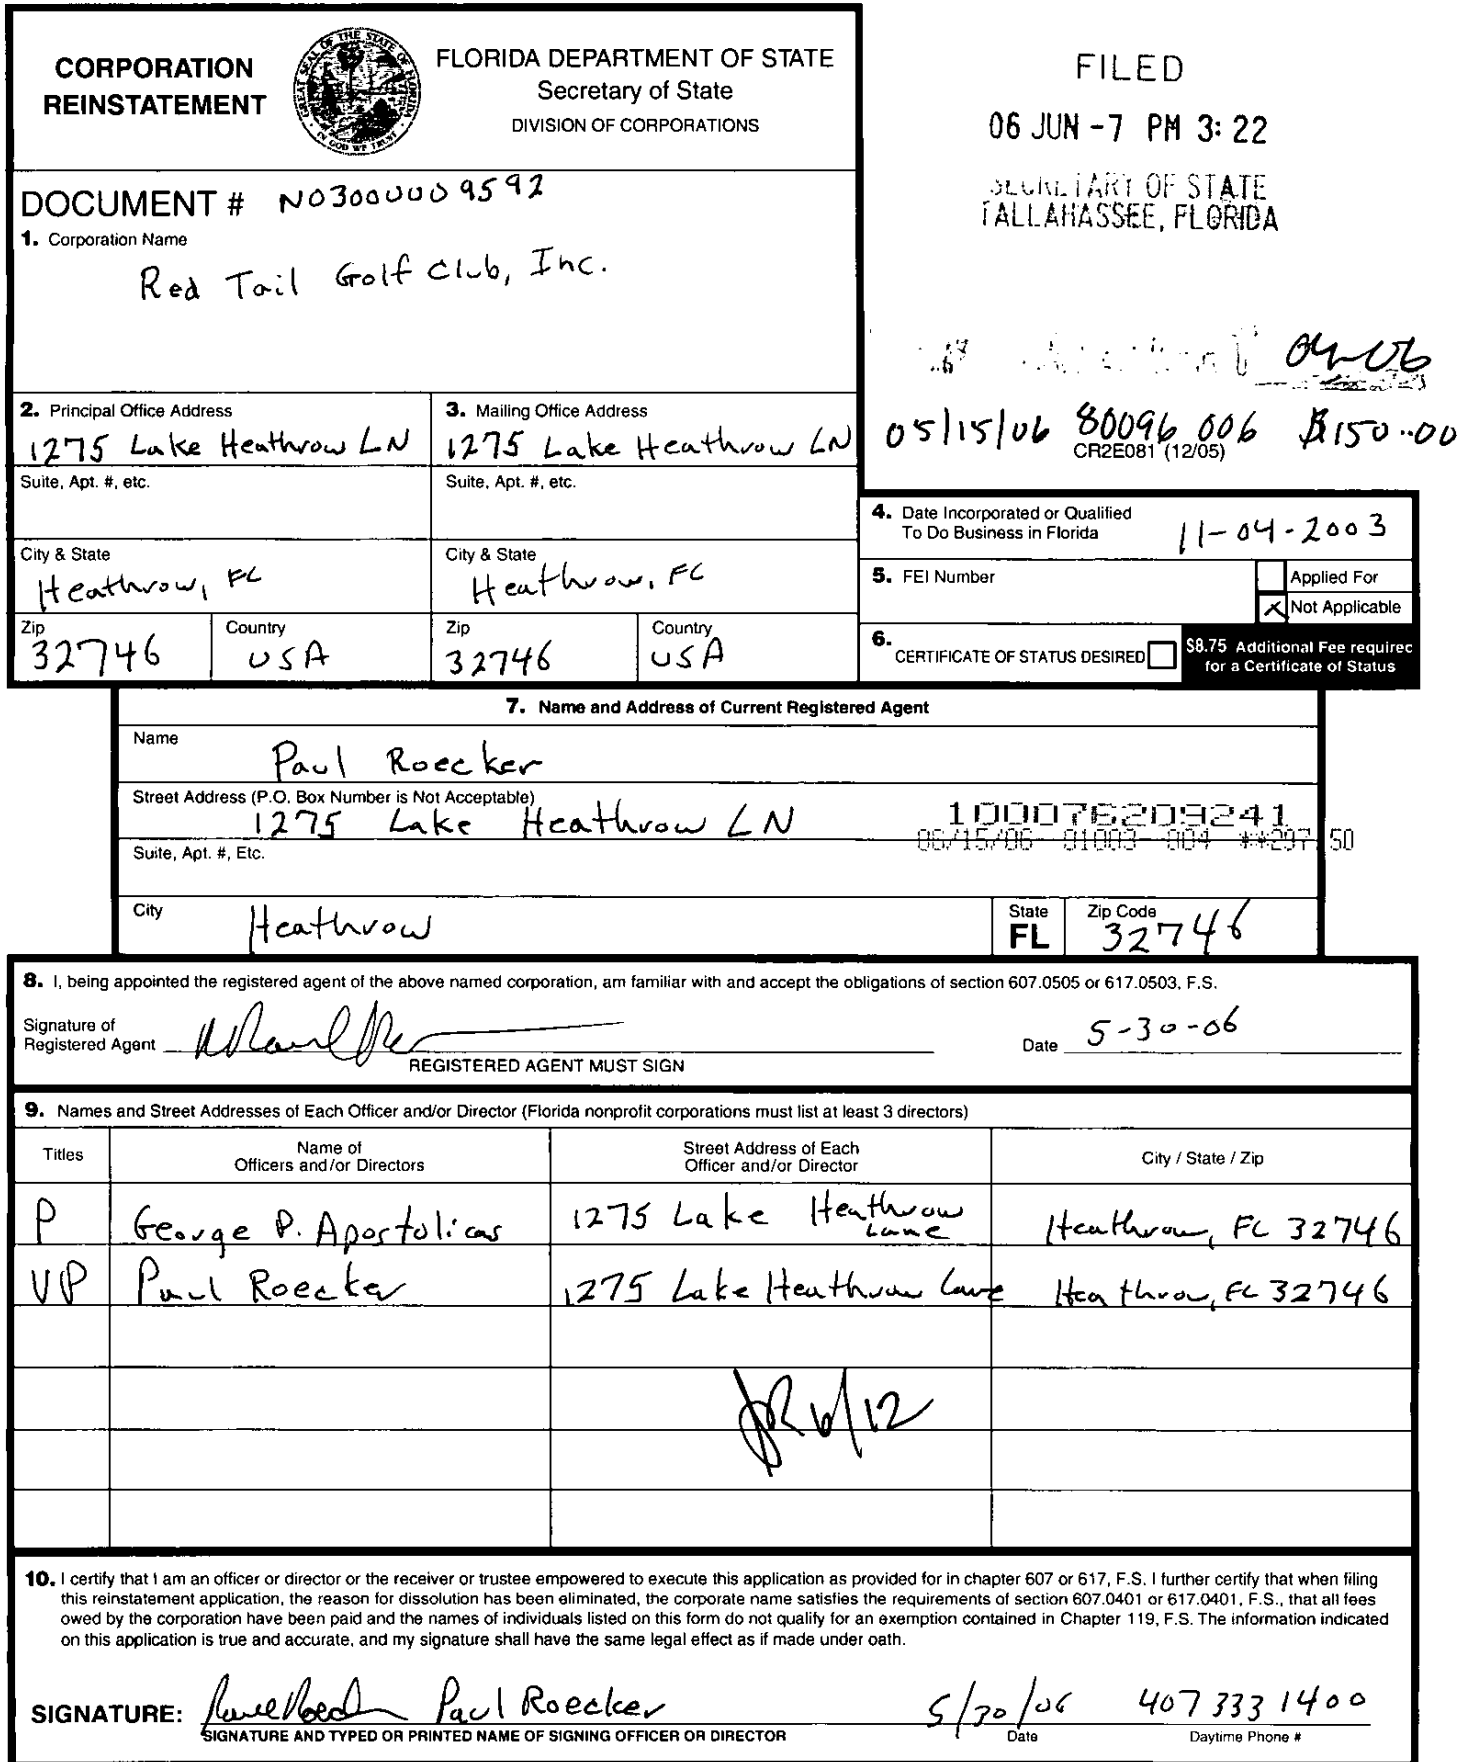 CORPORATION
REINSTATEMENT
GREAT SEAL OF THE STATE OF FLORIDA
IN GOD WE TRUST
FLORIDA DEPARTMENT OF STATE
Secretary of State
DIVISION OF CORPORATIONS
FILED
06 JUN -7 PM 3:22
SECRETARY OF STATE
TALLAHASSEE, FLORIDA
DOCUMENT # N03000009592
1. Corporation Name
Red Tail Golf Club, Inc.
04-06
05/15/06 80096 006 $150.00
CR2E081 (12/05)
2. Principal Office Address
1275 Lake Heathrow LN
3. Mailing Office Address
1275 Lake Heathrow LN
Suite, Apt. #, etc.
Suite, Apt. #, etc.
City & State
Heathrow, FL
City & State
Heathrow, FL
Zip
32746
Country
USA
Zip
32746
Country
USA
4. Date Incorporated or Qualified
To Do Business in Florida
11-04-2003
5. FEI Number
Applied For
X Not Applicable
6. CERTIFICATE OF STATUS DESIRED
$8.75 Additional Fee required
for a Certificate of Status
7. Name and Address of Current Registered Agent
Name
Paul Roecker
Street Address (P.O. Box Number is Not Acceptable)
1275 Lake Heathrow LN
100076209241
06/15/06 01003 004 **297.50
Suite, Apt. #, Etc.
City
Heathrow
State
FL
Zip Code
32746
8. I, being appointed the registered agent of the above named corporation, am familiar with and accept the obligations of section 607.0505 or 617.0503, F.S.
Signature of
Registered Agent
Date 5-30-06
REGISTERED AGENT MUST SIGN
9. Names and Street Addresses of Each Officer and/or Director (Florida nonprofit corporations must list at least 3 directors)
Titles
Name of
Officers and/or Directors
Street Address of Each
Officer and/or Director
City / State / Zip
P George P. Apostolicas 1275 Lake Heathrow Lane Heathrow, FL 32746
VP Paul Roecker 1275 Lake Heathrow Lane Heathrow, FL 32746
JR 6/12
10. I certify that I am an officer or director or the receiver or trustee empowered to execute this application as provided for in chapter 607 or 617, F.S. I further certify that when filing
this reinstatement application, the reason for dissolution has been eliminated, the corporate name satisfies the requirements of section 607.0401 or 617.0401, F.S., that all fees
owed by the corporation have been paid and the names of individuals listed on this form do not qualify for an exemption contained in Chapter 119, F.S. The information indicated
on this application is true and accurate, and my signature shall have the same legal effect as if made under oath.
SIGNATURE: Paul Roecker 5/30/06 407 333 1400
SIGNATURE AND TYPED OR PRINTED NAME OF SIGNING OFFICER OR DIRECTOR
Date
Daytime Phone #